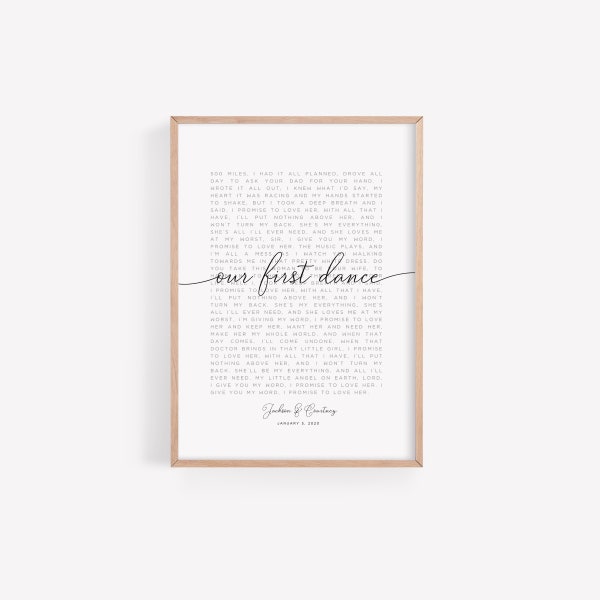 500 MILES, I HAD IT ALL PLANNED, DROVE ALL
DAY TO ASK YOUR DAD FOR YOUR HAND. I
WROTE IT ALL OUT, I KNEW WHAT I'D SAY, MY
HEART IT WAS RACING AND MY HANDS STARTED
TO SHAKE. BUT I TOOK A DEEP BREATH AND I
SAID, I PROMISE TO LOVE HER, WITH ALL THAT I
HAVE, I'LL PUT NOTHING ABOVE HER, AND I
WON'T TURN MY BACK. SHE'S MY EVERYTHING,
SHE'S ALL I'LL EVER NEED, AND SHE LOVES ME
AT MY WORST, SIR, I GIVE YOU MY WORD, I
PROMISE TO LOVE HER. THE MUSIC PLAYS, AND
I'M ALL A MESS AS I WATCH YOU WALKING
TOWARDS ME IN THAT PRETTY WHITE DRESS. DO
YOU TAKE THIS WOMAN TO BE YOUR WIFE, TO
our first dance
I PROMISE TO LOVE HER, WITH ALL THAT I HAVE,
I'LL PUT NOTHING ABOVE HER, AND I WON'T
TURN MY BACK. SHE'S MY EVERYTHING, SHE'S
ALL I'LL EVER NEED, AND SHE LOVES ME AT MY
WORST, I'M GIVING MY WORD, I PROMISE TO LOVE
HER AND KEEP HER, WANT HER AND NEED HER,
MAKE HER MY WHOLE WORLD. AND WHEN THAT
DAY COMES, I'LL COME UNDONE, WHEN THAT
DOCTOR BRINGS IN THAT LITTLE GIRL. I PROMISE
TO LOVE HER, WITH ALL THAT I HAVE, I'LL PUT
NOTHING ABOVE HER, AND I WON'T TURN MY
BACK. SHE'LL BE MY EVERYTHING, AND ALL I'LL
EVER NEED, MY LITTLE ANGEL ON EARTH, LORD,
I GIVE YOU MY WORD, I PROMISE TO LOVE HER. I
GIVE YOU MY WORD, I PROMISE TO LOVE HER.
Jackson & Courtney
JANUARY 5, 2020